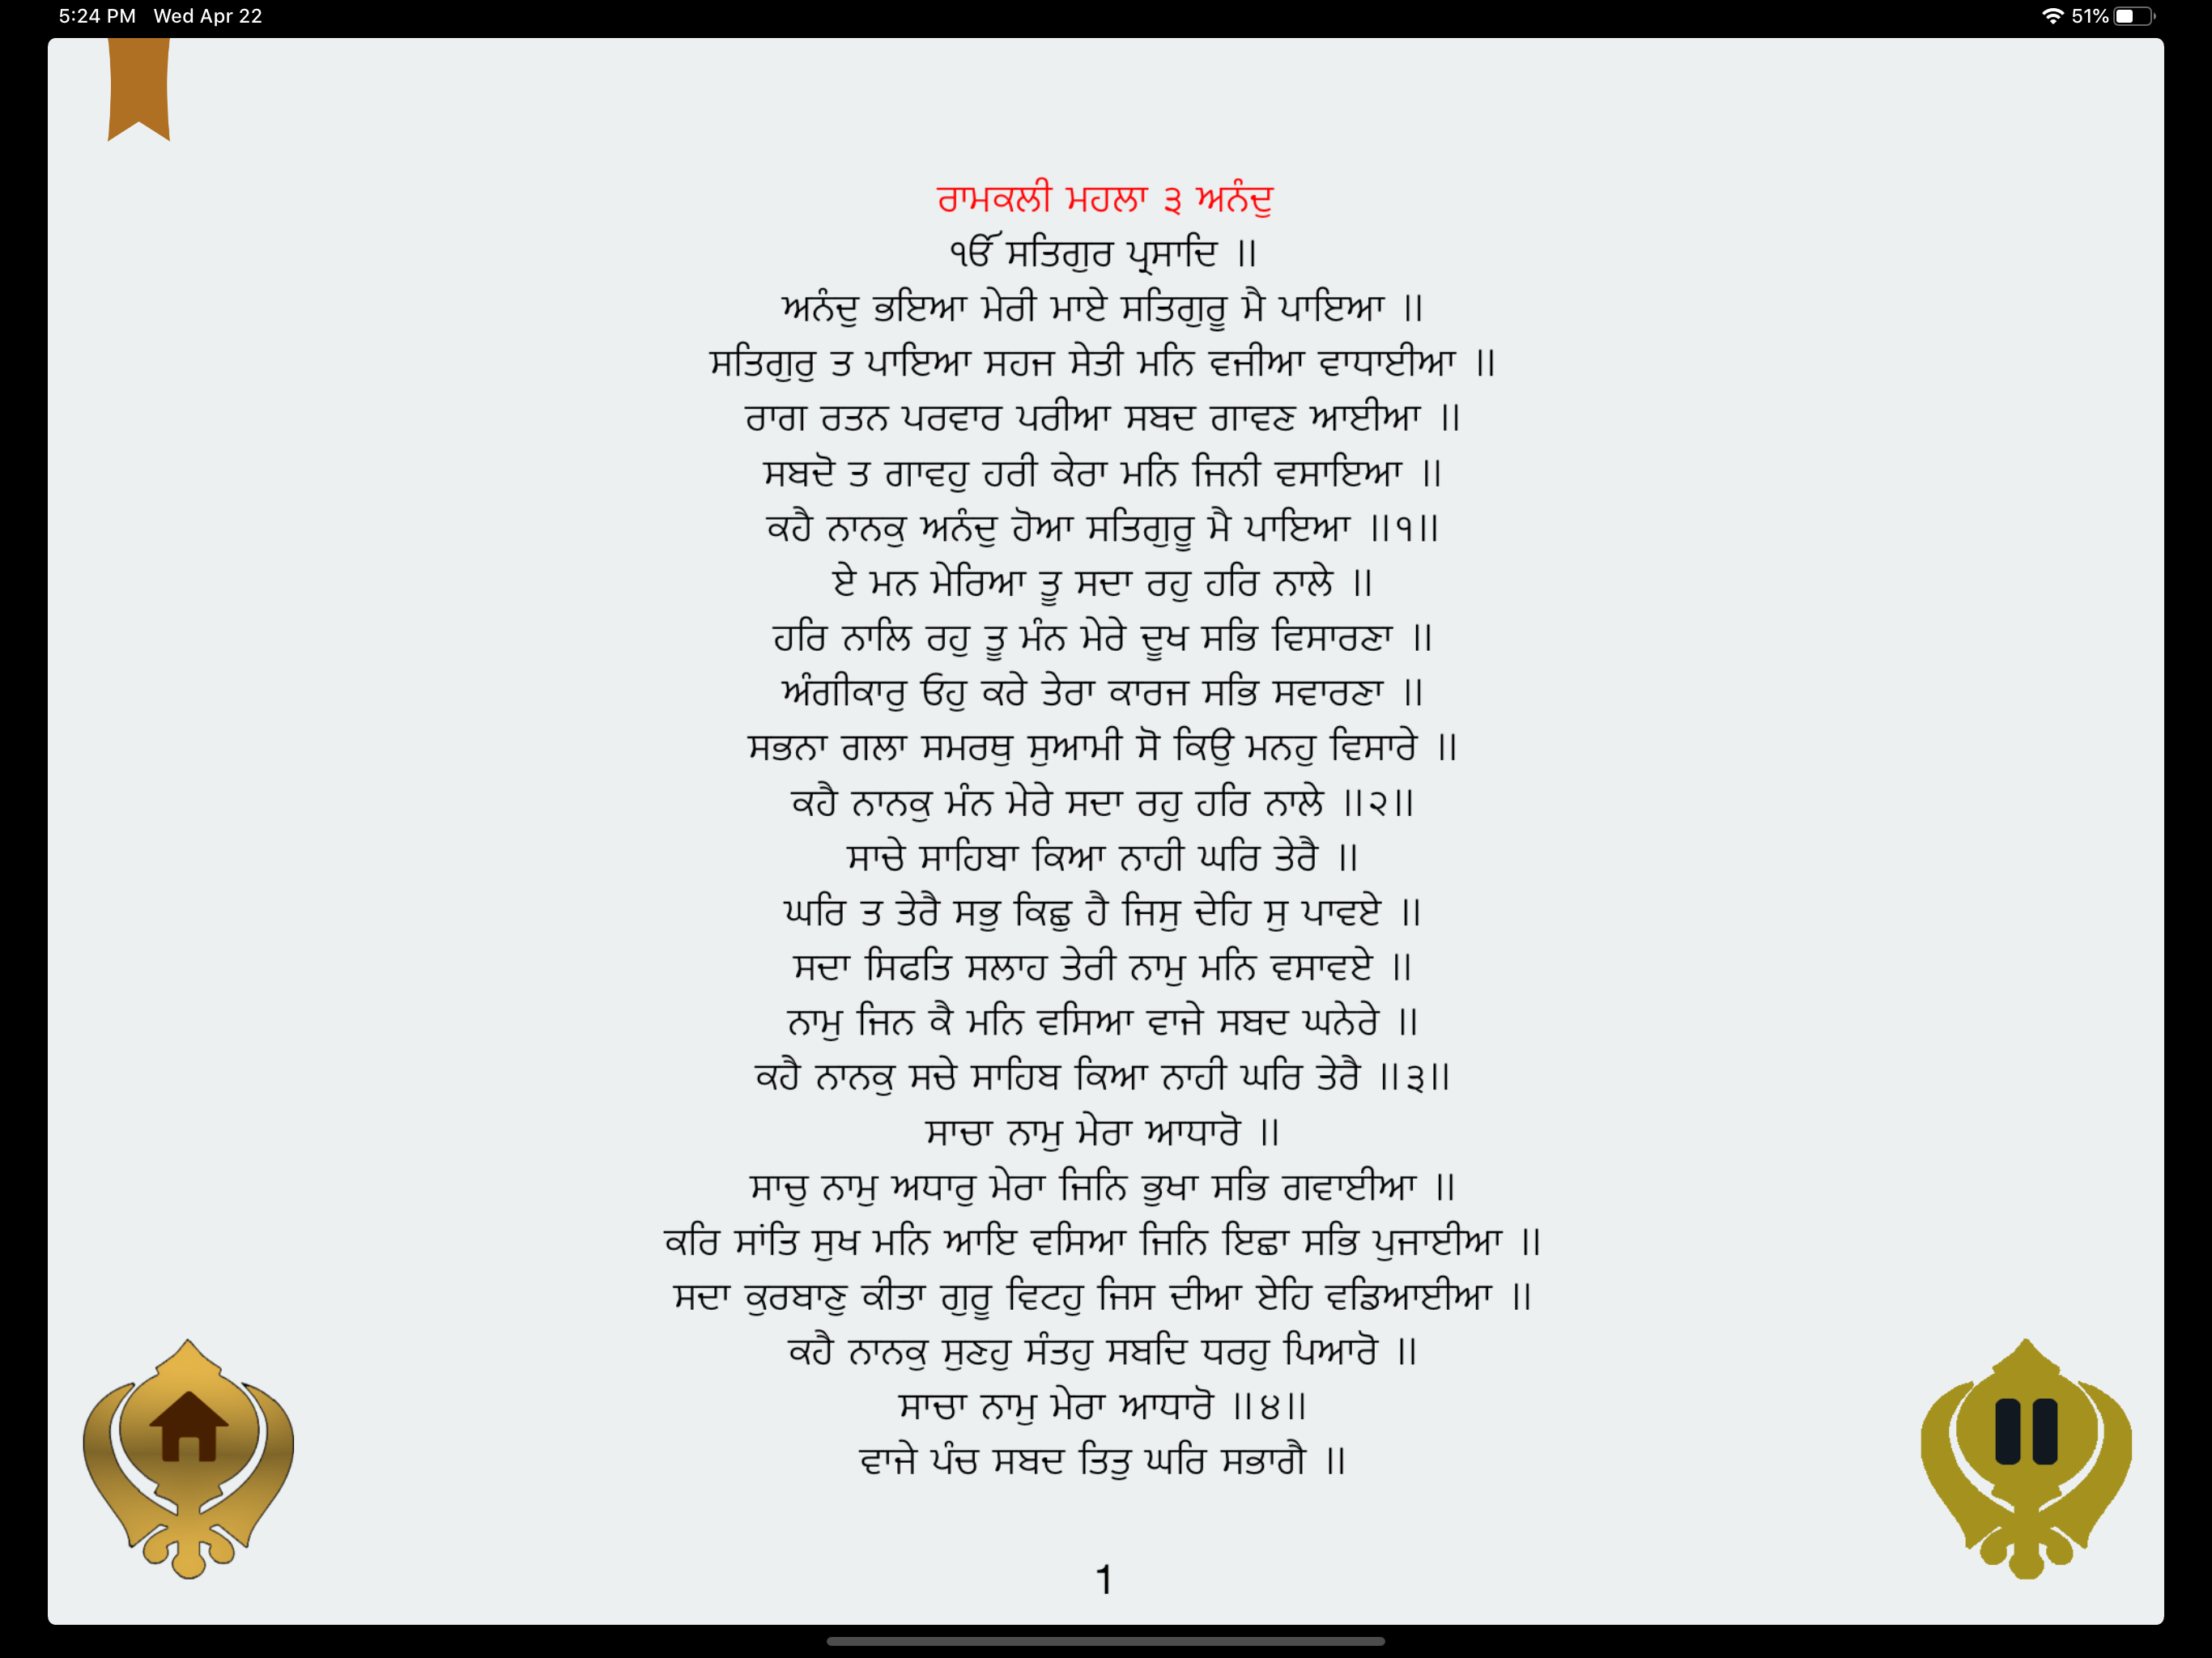 5:24 PM Wed Apr 22 51%
ਰਾਮਕਲੀ ਮਹਲਾ ੩ ਅਨੰਦੁ
ੴ ਸਤਿਗੁਰ ਪ੍ਰਸਾਦਿ ॥
ਅਨੰਦੁ ਭਇਆ ਮੇਰੀ ਮਾਏ ਸਤਿਗੁਰੂ ਮੈ ਪਾਇਆ ॥
ਸਤਿਗੁਰੁ ਤ ਪਾਇਆ ਸਹਜ ਸੇਤੀ ਮਨਿ ਵਜੀਆ ਵਾਧਾਈਆ ॥
ਰਾਗ ਰਤਨ ਪਰਵਾਰ ਪਰੀਆ ਸਬਦ ਗਾਵਣ ਆਈਆ ॥
ਸਬਦੋ ਤ ਗਾਵਹੁ ਹਰੀ ਕੇਰਾ ਮਨਿ ਜਿਨੀ ਵਸਾਇਆ ॥
ਕਹੈ ਨਾਨਕੁ ਅਨੰਦੁ ਹੋਆ ਸਤਿਗੁਰੂ ਮੈ ਪਾਇਆ ॥੧॥
ਏ ਮਨ ਮੇਰਿਆ ਤੂ ਸਦਾ ਰਹੁ ਹਰਿ ਨਾਲੇ ॥
ਹਰਿ ਨਾਲਿ ਰਹੁ ਤੂ ਮੰਨ ਮੇਰੇ ਦੂਖ ਸਭਿ ਵਿਸਾਰਣਾ ॥
ਅੰਗੀਕਾਰੁ ਓਹੁ ਕਰੇ ਤੇਰਾ ਕਾਰਜ ਸਭਿ ਸਵਾਰਣਾ ॥
ਸਭਨਾ ਗਲਾ ਸਮਰਥੁ ਸੁਆਮੀ ਸੋ ਕਿਉ ਮਨਹੁ ਵਿਸਾਰੇ ॥
ਕਹੈ ਨਾਨਕੁ ਮੰਨ ਮੇਰੇ ਸਦਾ ਰਹੁ ਹਰਿ ਨਾਲੇ ॥੨॥
ਸਾਚੇ ਸਾਹਿਬਾ ਕਿਆ ਨਾਹੀ ਘਰਿ ਤੇਰੈ ॥
ਘਰਿ ਤ ਤੇਰੈ ਸਭੁ ਕਿਛੁ ਹੈ ਜਿਸੁ ਦੇਹਿ ਸੁ ਪਾਵਏ ॥
ਸਦਾ ਸਿਫਤਿ ਸਲਾਹ ਤੇਰੀ ਨਾਮੁ ਮਨਿ ਵਸਾਵਏ ॥
ਨਾਮੁ ਜਿਨ ਕੈ ਮਨਿ ਵਸਿਆ ਵਾਜੇ ਸਬਦ ਘਨੇਰੇ ॥
ਕਹੈ ਨਾਨਕੁ ਸਚੇ ਸਾਹਿਬ ਕਿਆ ਨਾਹੀ ਘਰਿ ਤੇਰੈ ॥੩॥
ਸਾਚਾ ਨਾਮੁ ਮੇਰਾ ਆਧਾਰੋ ॥
ਸਾਚੁ ਨਾਮੁ ਅਧਾਰੁ ਮੇਰਾ ਜਿਨਿ ਭੁਖਾ ਸਭਿ ਗਵਾਈਆ ॥
ਕਰਿ ਸਾਂਤਿ ਸੁਖ ਮਨਿ ਆਇ ਵਸਿਆ ਜਿਨਿ ਇਛਾ ਸਭਿ ਪੁਜਾਈਆ ॥
ਸਦਾ ਕੁਰਬਾਣੁ ਕੀਤਾ ਗੁਰੂ ਵਿਟਹੁ ਜਿਸ ਦੀਆ ਏਹਿ ਵਡਿਆਈਆ ॥
ਕਹੈ ਨਾਨਕੁ ਸੁਣਹੁ ਸੰਤਹੁ ਸਬਦਿ ਧਰਹੁ ਪਿਆਰੋ ॥
ਸਾਚਾ ਨਾਮੁ ਮੇਰਾ ਆਧਾਰੋ ॥੪॥
ਵਾਜੇ ਪੰਚ ਸਬਦ ਤਿਤੁ ਘਰਿ ਸਭਾਗੈ ॥
1